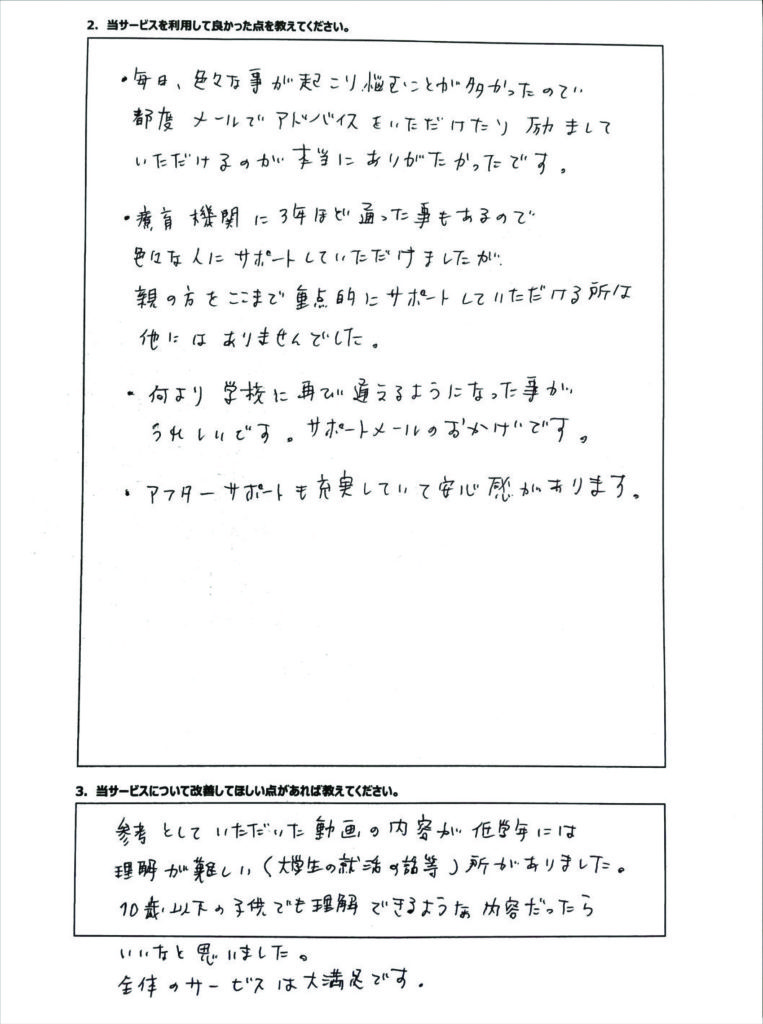 2. 当サービスを利用して良かった点を教えてください。
・毎日、色々な事が起こり、悩むことが多かったので
都度 メールで アドバイスをいただけたり 励まして
いただけるのが 本当に ありがたかったです。
・療育 機関 に 3年ほど 通った事もあるので
色々な人に サポートしていただけましたが
親の方を ここまで 重点的に サポートしていただける所は
他には ありませんでした。
・何より 学校に 再び 通えるようになった事が
うれしいです。サポートメールのおかげです。
・アフターサポートも充実していて安心感があります。
3. 当サービスについて改善してほしい点があれば教えてください。
参考としていただいた動画の内容が 低学年には
理解が難しい(大学生の就活の話等)所がありました。
10歳以下の子供でも理解できるような内容だったら
いいなと思いました。
全体のサービスは大満足です。